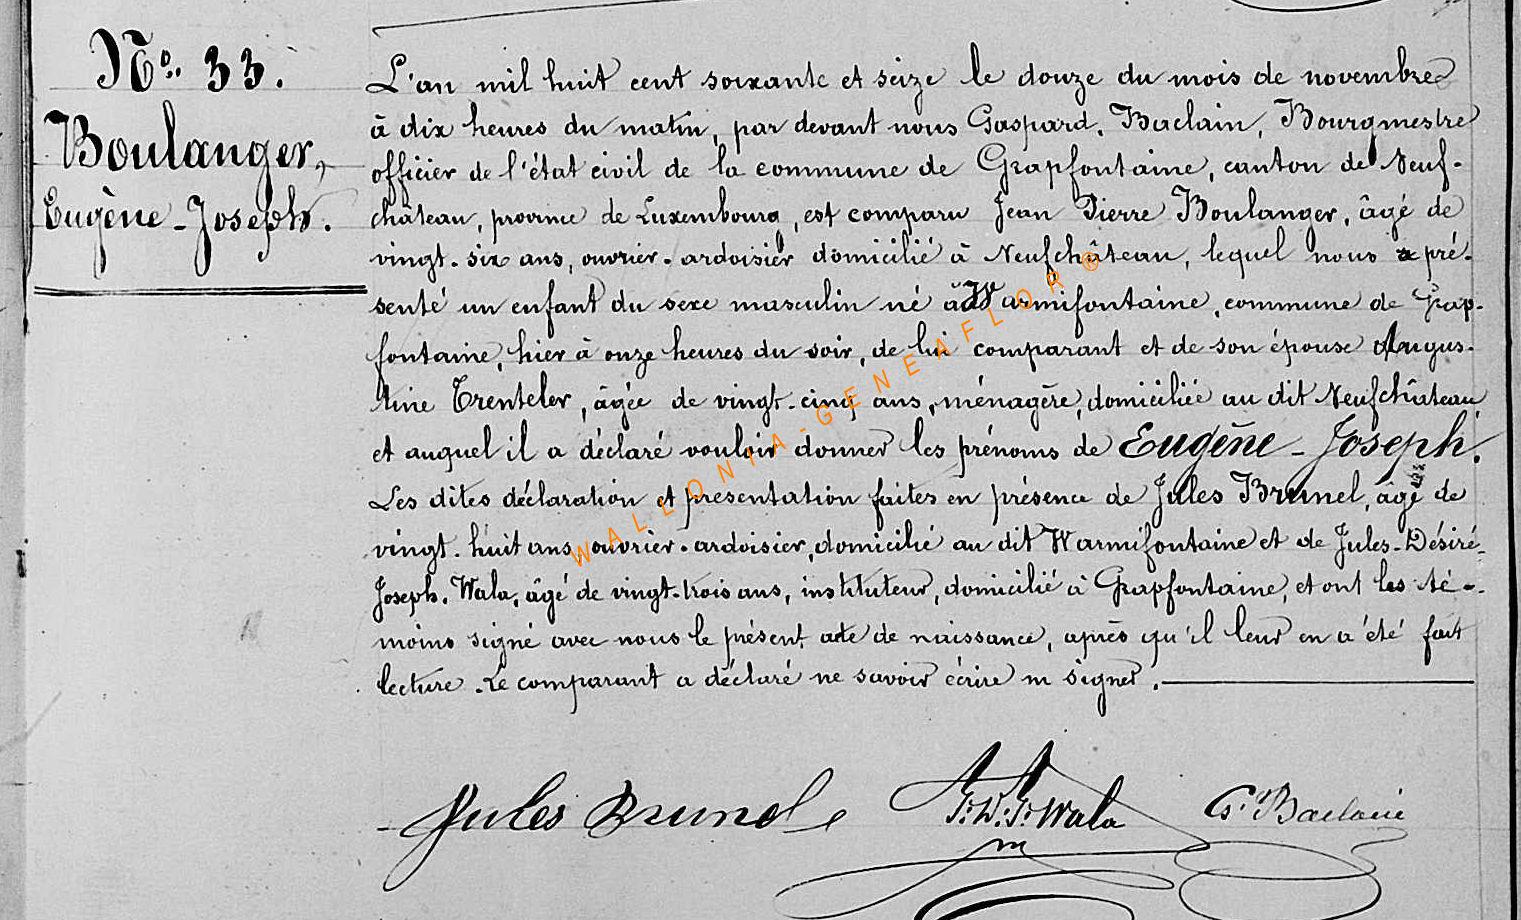 N° 33.
Boulanger,
Eugène-Joseph.
L'an mil huit cent soixante et seize le douze du mois de novembre
à dix heures du matin, par devant nous Gaspard. Baclain, Bourgmestre
officier de l'état civil de la commune de Grapfontaine, canton de Neuf-
château, province de Luxembourg, est comparu Jean Pierre Boulanger, âgé de
vingt-six ans, ouvrier-ardoisier domicilié à Neufchâteau, lequel nous a pré-
senté un enfant du sexe masculin né à Warmifontaine, commune de Grap-
fontaine, hier à onze heures du soir, de lui comparant et de son épouse Augus-
tine Trenteler, âgée de vingt-cinq ans, ménagère, domiciliée au dit Neufchâteau
et auquel il a déclaré vouloir donner les prénoms de Eugène-Joseph.
Les dites déclaration et présentation faites en présence de Jules Brunel, âgé de
vingt-huit ans ouvrier-ardoisier, domicilié au dit Warmifontaine et de Jules-Désiré-
Joseph. Wala, âgé de vingt-trois ans, instituteur, domicilié à Grapfontaine, et ont les té-
moins signé avec nous le présent acte de naissance, après qu'il leur en a été fait
lecture. Le comparant a déclaré ne savoir écrire ni signer.
Jules Brunel J.D.J. Wala G. Baclain
WALLONIA-GENEAFLOR®